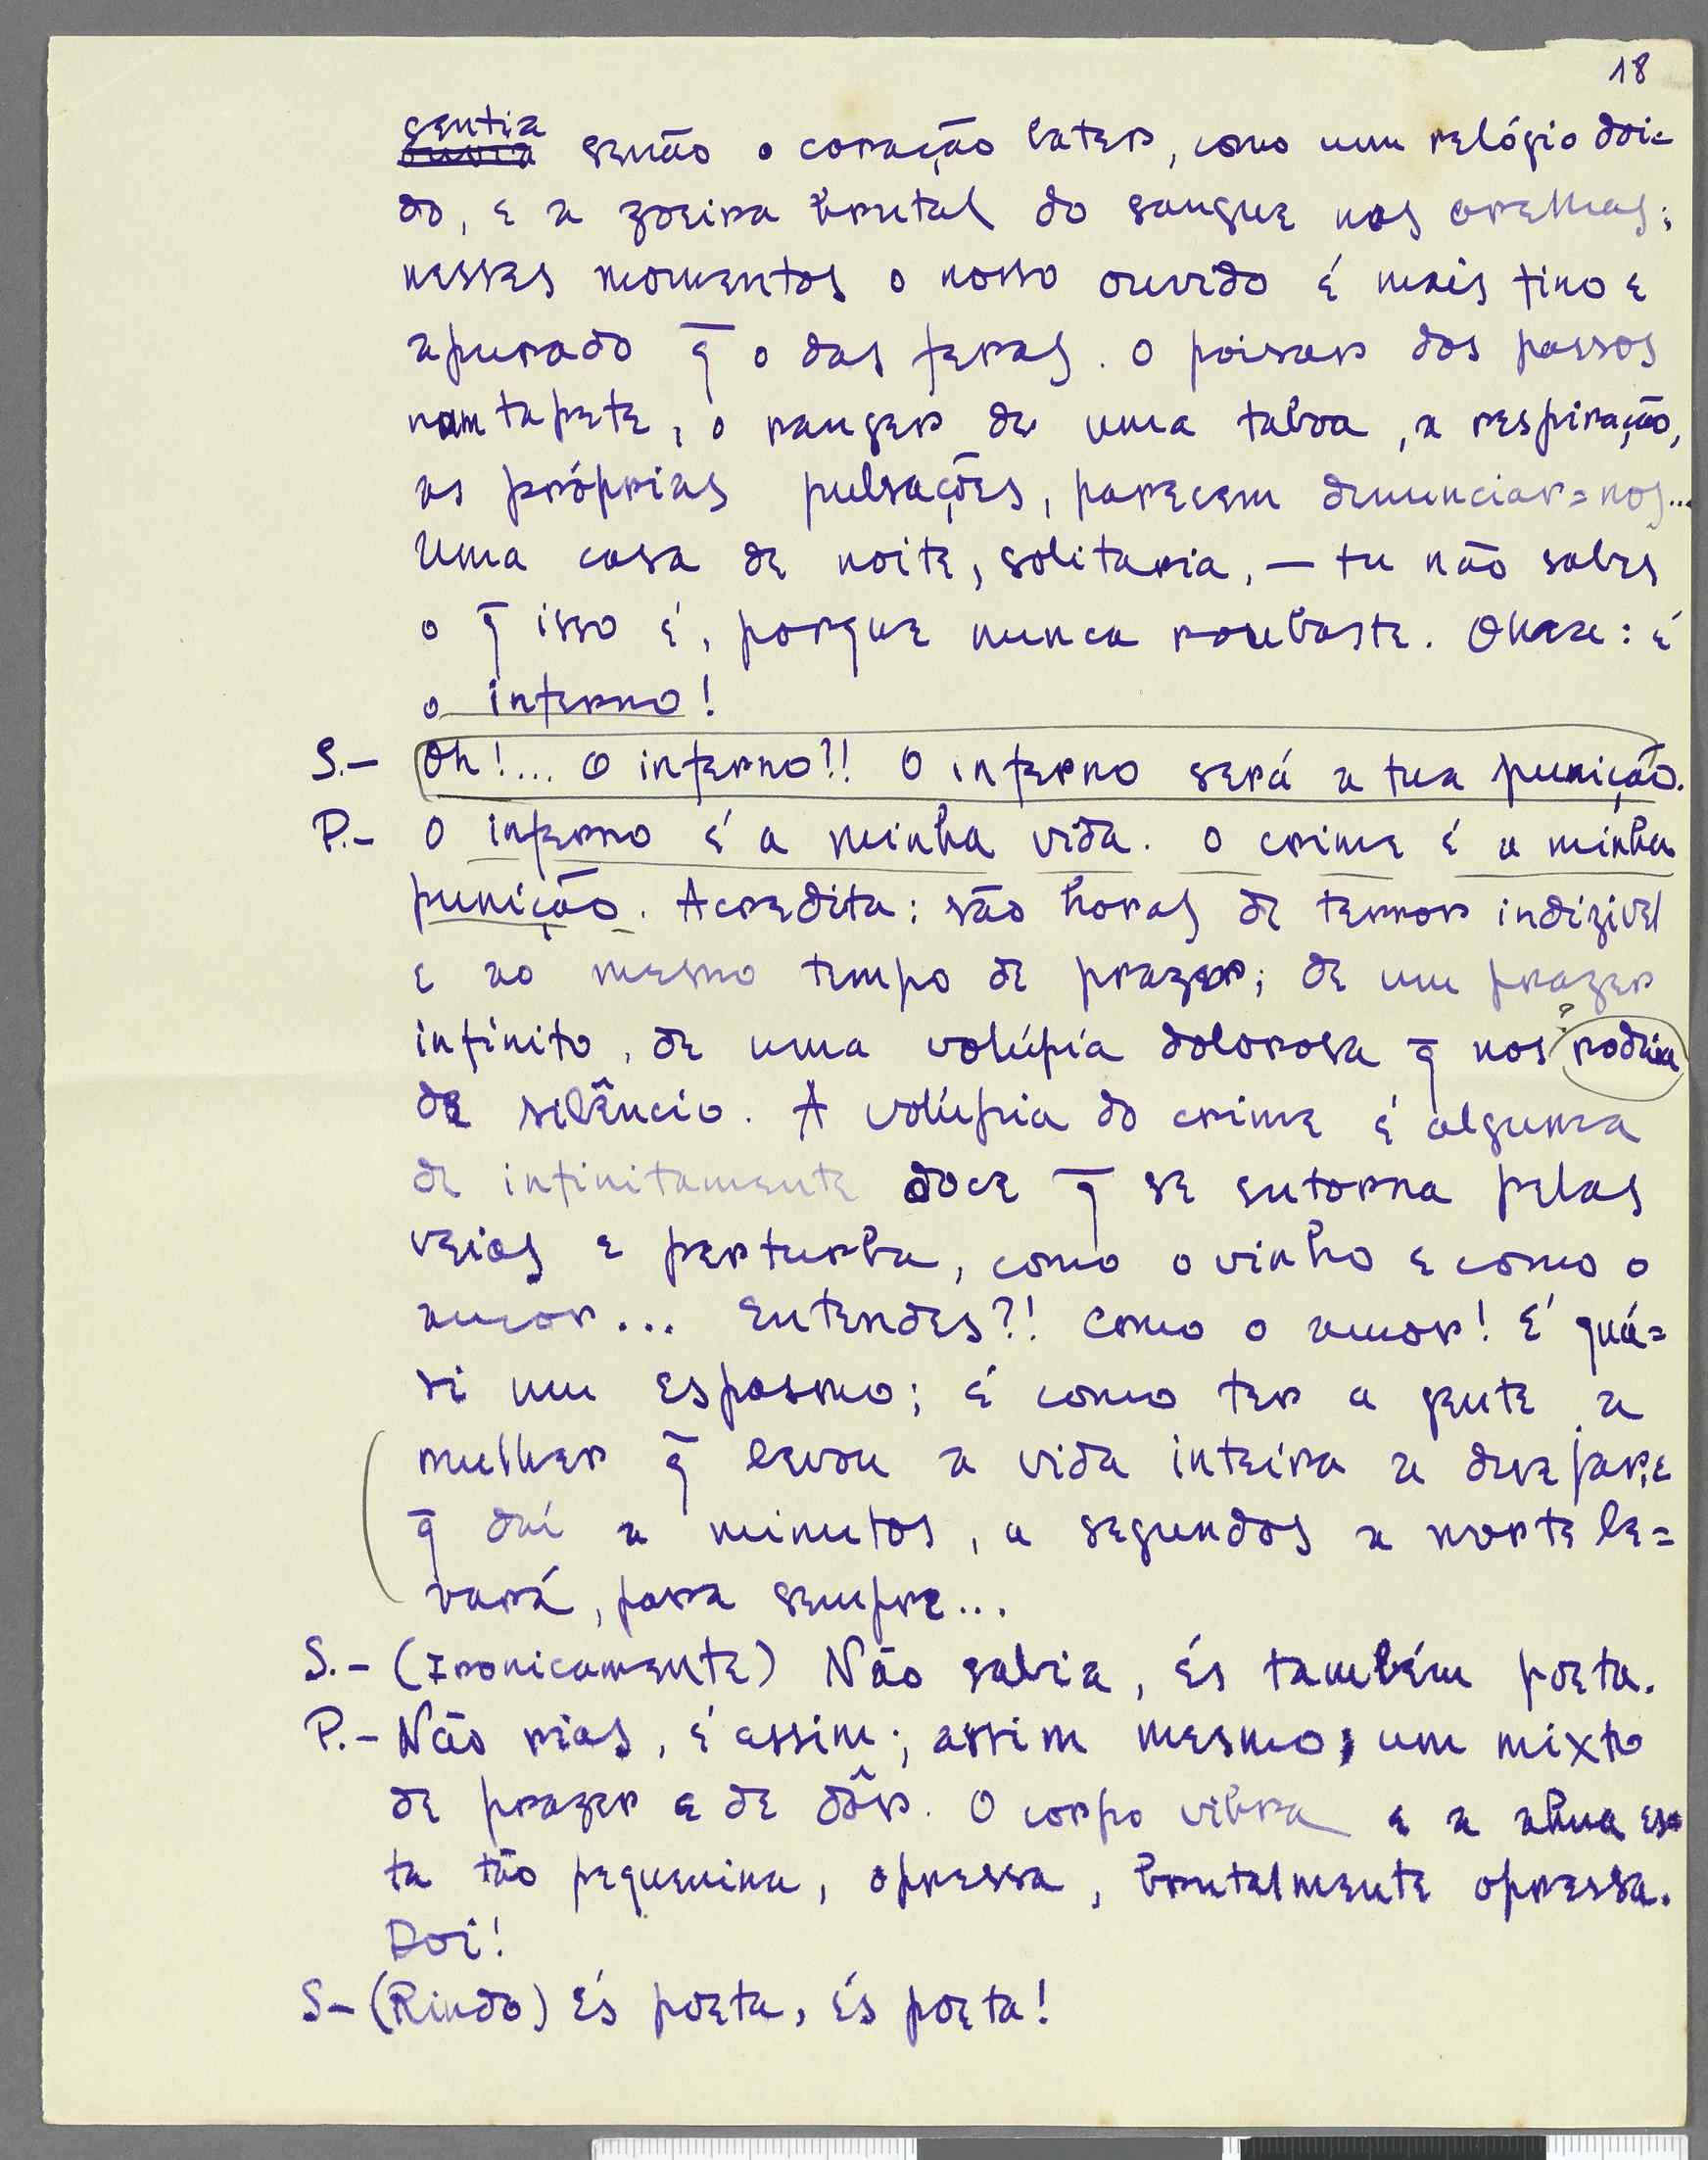 18
sentia
ouvia senão o coração bater, como um relógio doi=
do, e a zoeira brutal do sangue nas orelhas;
nesses momentos o nosso ouvido é mais fino e
apurado q̄ o das feras. O poisar dos passos
num tapete, o ranger de uma taboa, a respiração,
as próprias pulsações, parecem denunciar=nos...
Uma casa de noite, solitaria, — tu não sabes
o q̄ isso é, porque nunca roubaste. : é
o inferno!
S.— Oh!... O inferno?!! O inferno será a tua punição.
P.— O inferno é a minha vida. O crime é a minha
punição. Acredita: são horas de terror indizivel
e ao mesmo tempo de prazer; de um prazer
infinito, de uma volúpia dolorosa q̄ nos ?
de silêncio. A volúpia do crime é alguma
de infinitamente doce q̄ se entorna pelas
veias e perturba, como o vinho e como o
amor... Entendes?! Como o amor! É quá=
si um espasmo; é como ter a gente a
mulher q̄ levou a vida inteira a desejar; e
q̄ daí a minutos, a segundos a morte le=
vará, para sempre...
S.— (Ironicamente) Não sabia, és também poeta.
P.— Não rias, é assim; assim mesmo, um mixto
de prazer e de dôr. O corpo vibra e a alma es=
ta tão pequenina, opressa, brutalmente opressa.
Doi!
S— (Rindo) És poeta, és poeta!